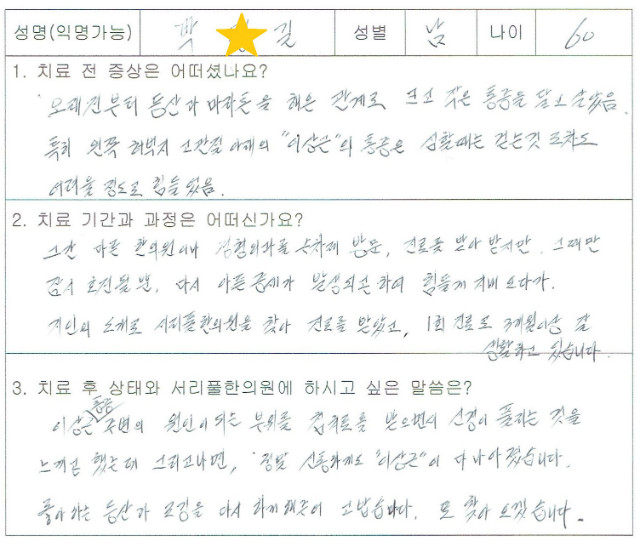 성명(익명가능) 박 길 성별 남 나이 60
1. 치료 전 증상은 어떠셨나요?
오래전부터 등산과 마라톤을 해온 관계로 크고 작은 통증을 달고 살았음.
특히 왼쪽 허벅지 고관절 아래의 "이상근"의 통증은 심할때는 걷는것 조차도
어려울 정도로 힘들었음.
2. 치료 기간과 과정은 어떠신가요?
그간 다른 한의원이나 정형외과를 수차례 방문, 진료를 받아 봤지만 그때만
잠시 호전될 뿐, 다시 아픈 증세가 발생되곤 하여 힘들게 지내 오다가.
지인의 소개로 서리풀한의원을 찾아 진료를 받았고, 1회 진료로 3개월이상 잘
생활하고 있습니다.
3. 치료 후 상태와 서리풀한의원에 하시고 싶은 말씀은?
이상근 통증 주변의 원인이 되는 부위를 침치료를 받으면서 신경이 풀리는 것을
느끼곤 했는데 그리고나면, 정말 신통하게도 "이상근"이 다 나아졌습니다.
좋아하는 등산과 조깅을 다시 하게해주어 고맙습니다. 또 찾아 오겠습니다.